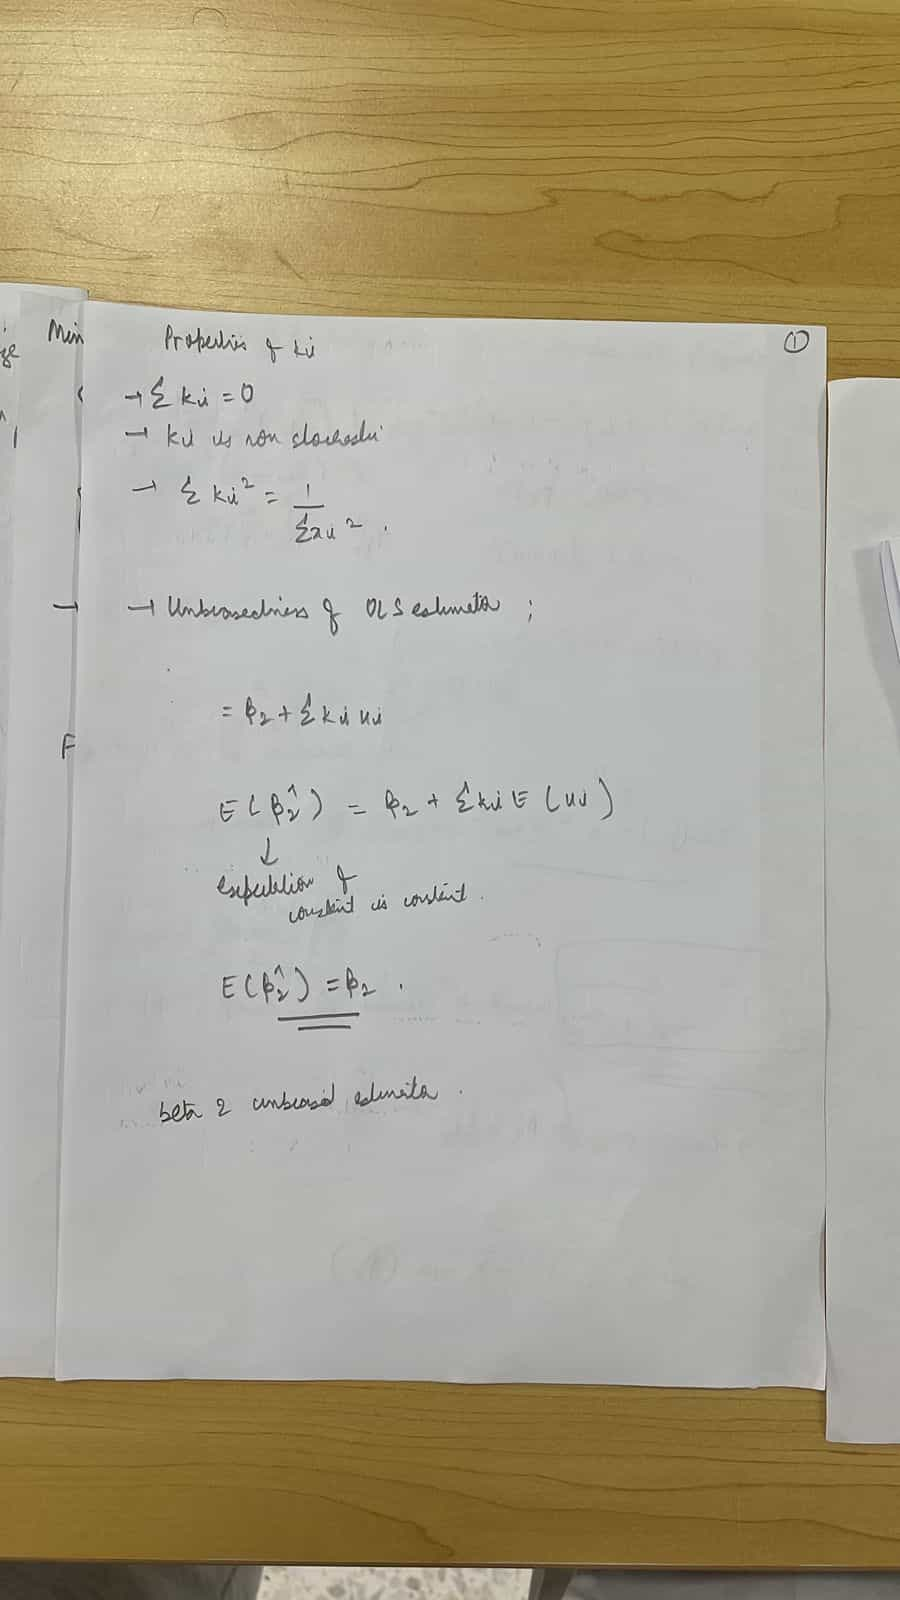 Min
Properties of ki
①
→ Σ ki = 0
→ ki is non stochastic
→ Σ ki² = 1
Σxi² .
→ Unbiasedness of OLS estimator ;
= β₂ + Σ ki ui
F
E(β̂₂) = β₂ + Σki E(ui)
↓
expectation of
constant is constant .
E(β̂₂) = β₂ .
beta 2 unbiased estimator .